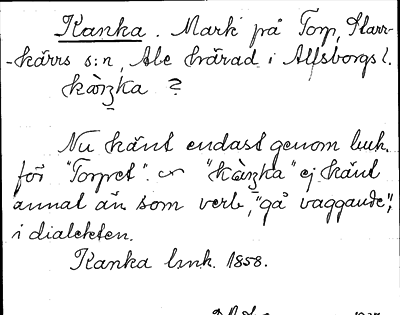 Kanka. Mark på Torp, Starr-
-kärrs s:n, Ale härad i Älfsborgs l.
kàŋka ?
Nu känt endast genom luk.
för "Torpet". "kàŋka" ej känt
annat än som verb, "gå vaggande",
i dialekten.
Kanka lmk. 1858.